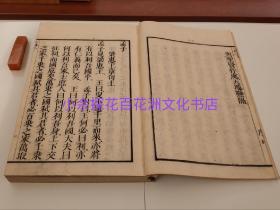 孟子
梁惠王章句上
孟子見梁惠王王曰叟不遠千里而來亦將
有以利吾國乎孟子對曰王何必曰利亦
有仁義而已矣王曰何以利吾國大夫曰
何以利吾家士庶人曰何以利吾身上下交
征利而國危矣萬乘之國弒其君者必千乘
之家千乘之國弒其君者必百乘之家萬取
百花洲文化书店